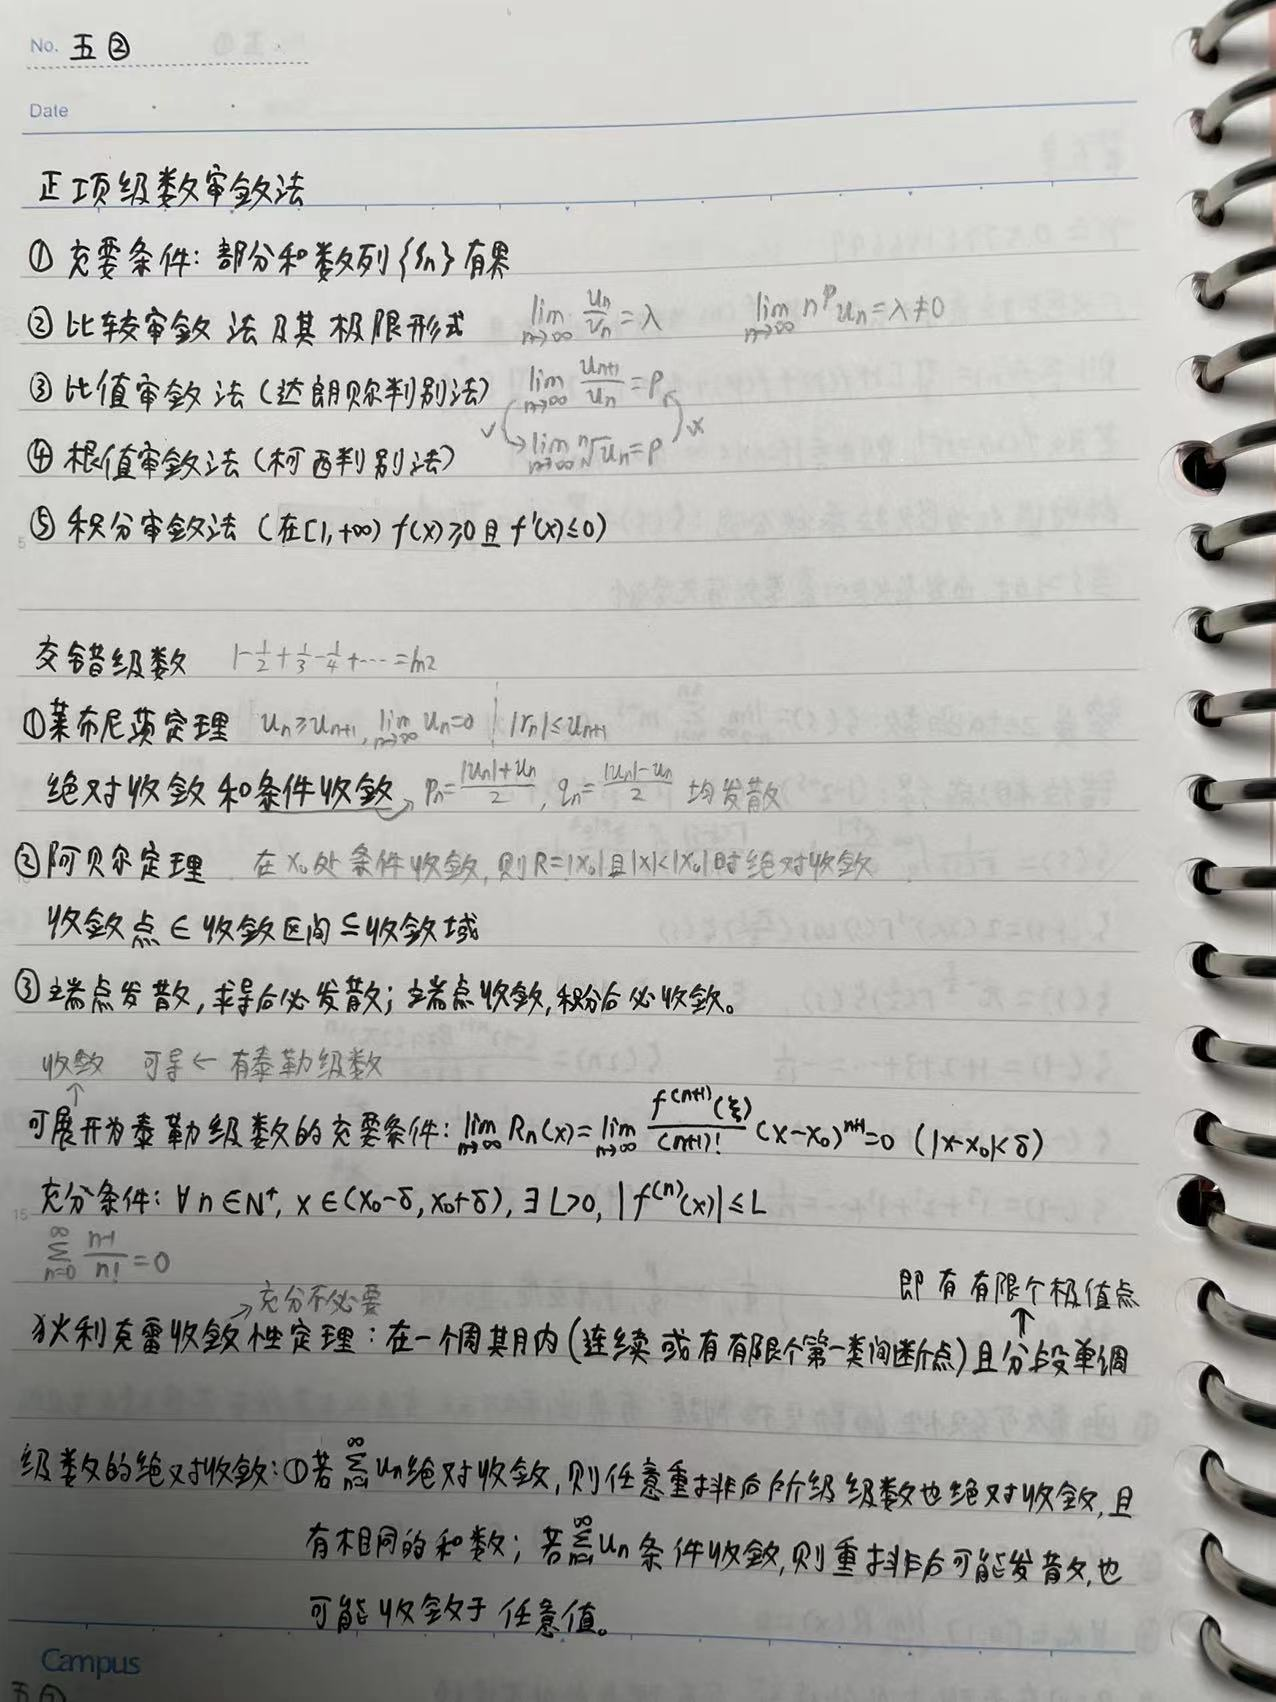 No. 五②
Date
正项级数审敛法
① 充要条件: 部分和数列{Sn}有界
② 比较审敛法及其极限形式 lim n→∞ un/vn = λ lim n→∞ n^p un = λ ≠ 0
③ 比值审敛法 (达朗贝尔判别法) lim n→∞ un+1/un = ρ
√ ×
④ 根值审敛法 (柯西判别法) lim n→∞ ⁿ√un = ρ
⑤ 积分审敛法 (在[1,+∞) f(x)≥0且f'(x)≤0)
5
交错级数 1-1/2+1/3-1/4+…=ln2
① 莱布尼茨定理 un≥un+1, lim n→∞ un=0 |rn|≤un+1
绝对收敛和条件收敛→ pn=(|un|+un)/2, qn=(|un|-un)/2 均发散
② 阿贝尔定理 在x₀处条件收敛,则R=|x₀|且|x|<|x₀|时绝对收敛
收敛点∈收敛区间⊆收敛域
③ 端点发散,求导后必发散; 端点收敛,积分后必收敛。
收敛 可导←有泰勒级数
↑
可展开为泰勒级数的充要条件: lim n→∞ Rn(x)= lim n→∞ f^(n+1)(ξ)/(n+1)! (x-x₀)^(n+1)=0 (|x-x₀|<δ)
充分条件: ∀n∈N⁺, x∈(x₀-δ,x₀+δ), ∃L>0, |f^(n)(x)|≤L
15
∑ n=0 ∞ (n-1)/n! =0
即有有限个极值点
→充分不必要 ↑
狄利克雷收敛性定理: 在一个周期内(连续或有有限个第一类间断点)且分段单调
级数的绝对收敛: ①若∑ n=1 ∞ un绝对收敛,则任意重排后所级级数也绝对收敛,且
有相同的和数; 若∑ n=1 ∞ un条件收敛,则重排后可能发散,也
可能收敛于任意值。
Campus